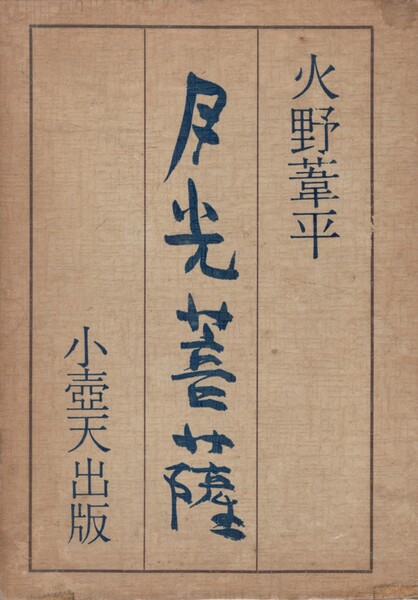 火野葦平
月光菩薩
小壺天出版